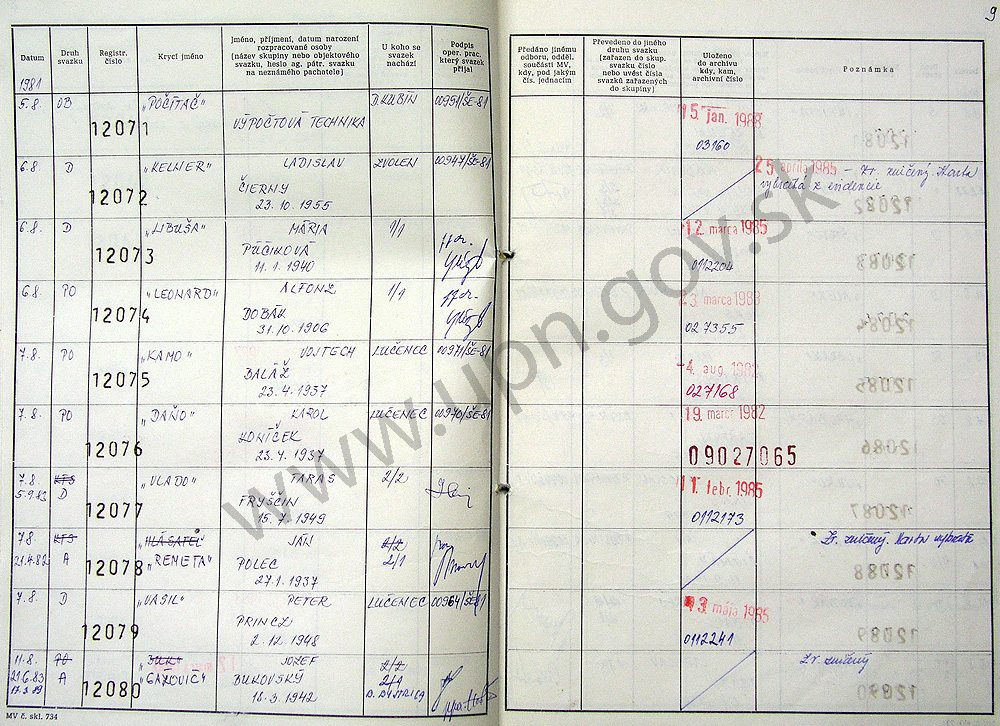 9
Datum
Druh
svazku
Registr.
číslo
Krycí jméno
Jméno, příjmení, datum narození
rozpracované osoby
(název skupiny nebo objektového
svazku, heslo ag. pátr. svazku
na neznámého pachatele)
U koho se
svazek
nachází
Podpis
oper. prac.
který svazek
přijal
Předáno jinému
odboru, odděl.
součásti MV,
kdy, pod jakým
čís. jednacím
Převedeno do jiného
druhu svazku
(zařazen do skup.
svazku číslo
nebo uvést čísla
svazků zařazených
do skupiny)
Uloženo
do archivu
kdy, kam,
archivní číslo
Poznámka
1981
5.8. OB 12071 „POČÍTAČ" D. KUBÍN 00951/ŠE-81
VÝPOČTOVÁ TECHNIKA
15. jan. 1988
03160
6.8. D 12072 „KELNER" LADISLAV ZVOLEN 00947/ŠE-81
ČIERNY
23.10.1955
25. apríla 1985 - Zr. zničený. Karta
vybratá z evidencie
6.8. D 12073 „LIBUŠA" MÁRIA 1/1
PÚČIKOVÁ
11.1.1940
12. marca 1985
0112204
6.8. PO 12074 „LEONARD" ALFONZ 1/1
DOBÁK
31.10.1906
23. marca 1983
027355
7.8. PO 12075 „KAMO" VOJTECH LUČENEC 00971/ŠE-81
BALÁŽ
23.4.1937
-4. aug. 1982
027168
7.8. PO 12076 „DAŇO" KAROL LUČENEC 00970/ŠE-81
KONÍČEK
23.4.1937
19. marca 1982
09027065
7.8. KTS 12077 „VLADO" TARAS 2/2
5.9.83 D FRYŠČIN
15.7.1949
11. febr. 1985
0112173
7.8. KTS 12078 „HLÁSATEĽ" JÁN 2/2
21.4.82 A „REMETA" POLEC 2/1
27.1.1937
Zr. zničený Karta vybratá
7.8. D 12079 „VASIL" PETER LUČENEC 00964/ŠE-81
PRINCZ
2.12.1948
13. mája 1985
0112241
11.8. PO 12080 JOZEF 2/2
21.6.83 A BUKOVSKÝ 2/1
18.3.1942 B. BYSTRICA
Zr. zničený
MV č. skl. 734
www.upn.gov.sk